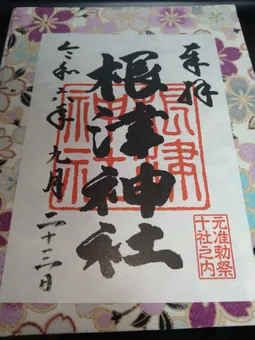 奉拝
根津神社
令和六年九月二十三日
根津神社
元准勅祭
十社之内